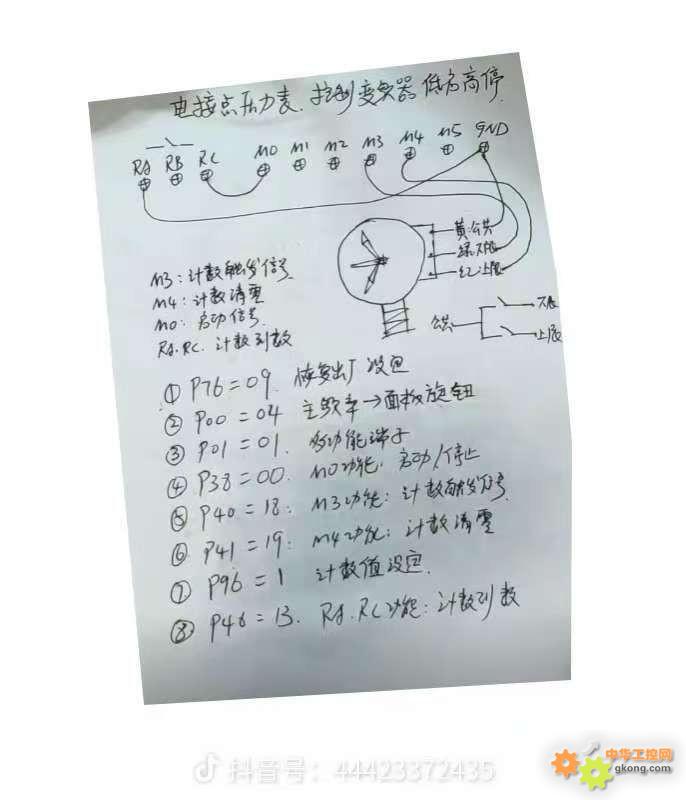 电接点压力表.控制变频器低启高停.
RA RB RC M0 M1 M2 M3 M4 M5 GND
黄:公共
绿:下限
红:上限
M3:计数触发信号
M4:计数清零
M0:启动信号.
RA.RC.计数到数
公共
下限
上限
① P76=09. 恢复出厂设置
② P00=04 主频率→面板旋钮
③ P01=01. 多功能端子
④ P38=00. M0功能.启动/停止
⑤ P40=18. M3功能:计数触发信号.
⑥ P41=19. M4功能:计数清零
⑦ P96=1 计数值设定.
⑧ P46=13. RA.RC功能:计数到数
抖音号:44423372435
中华工控网
gkong.com